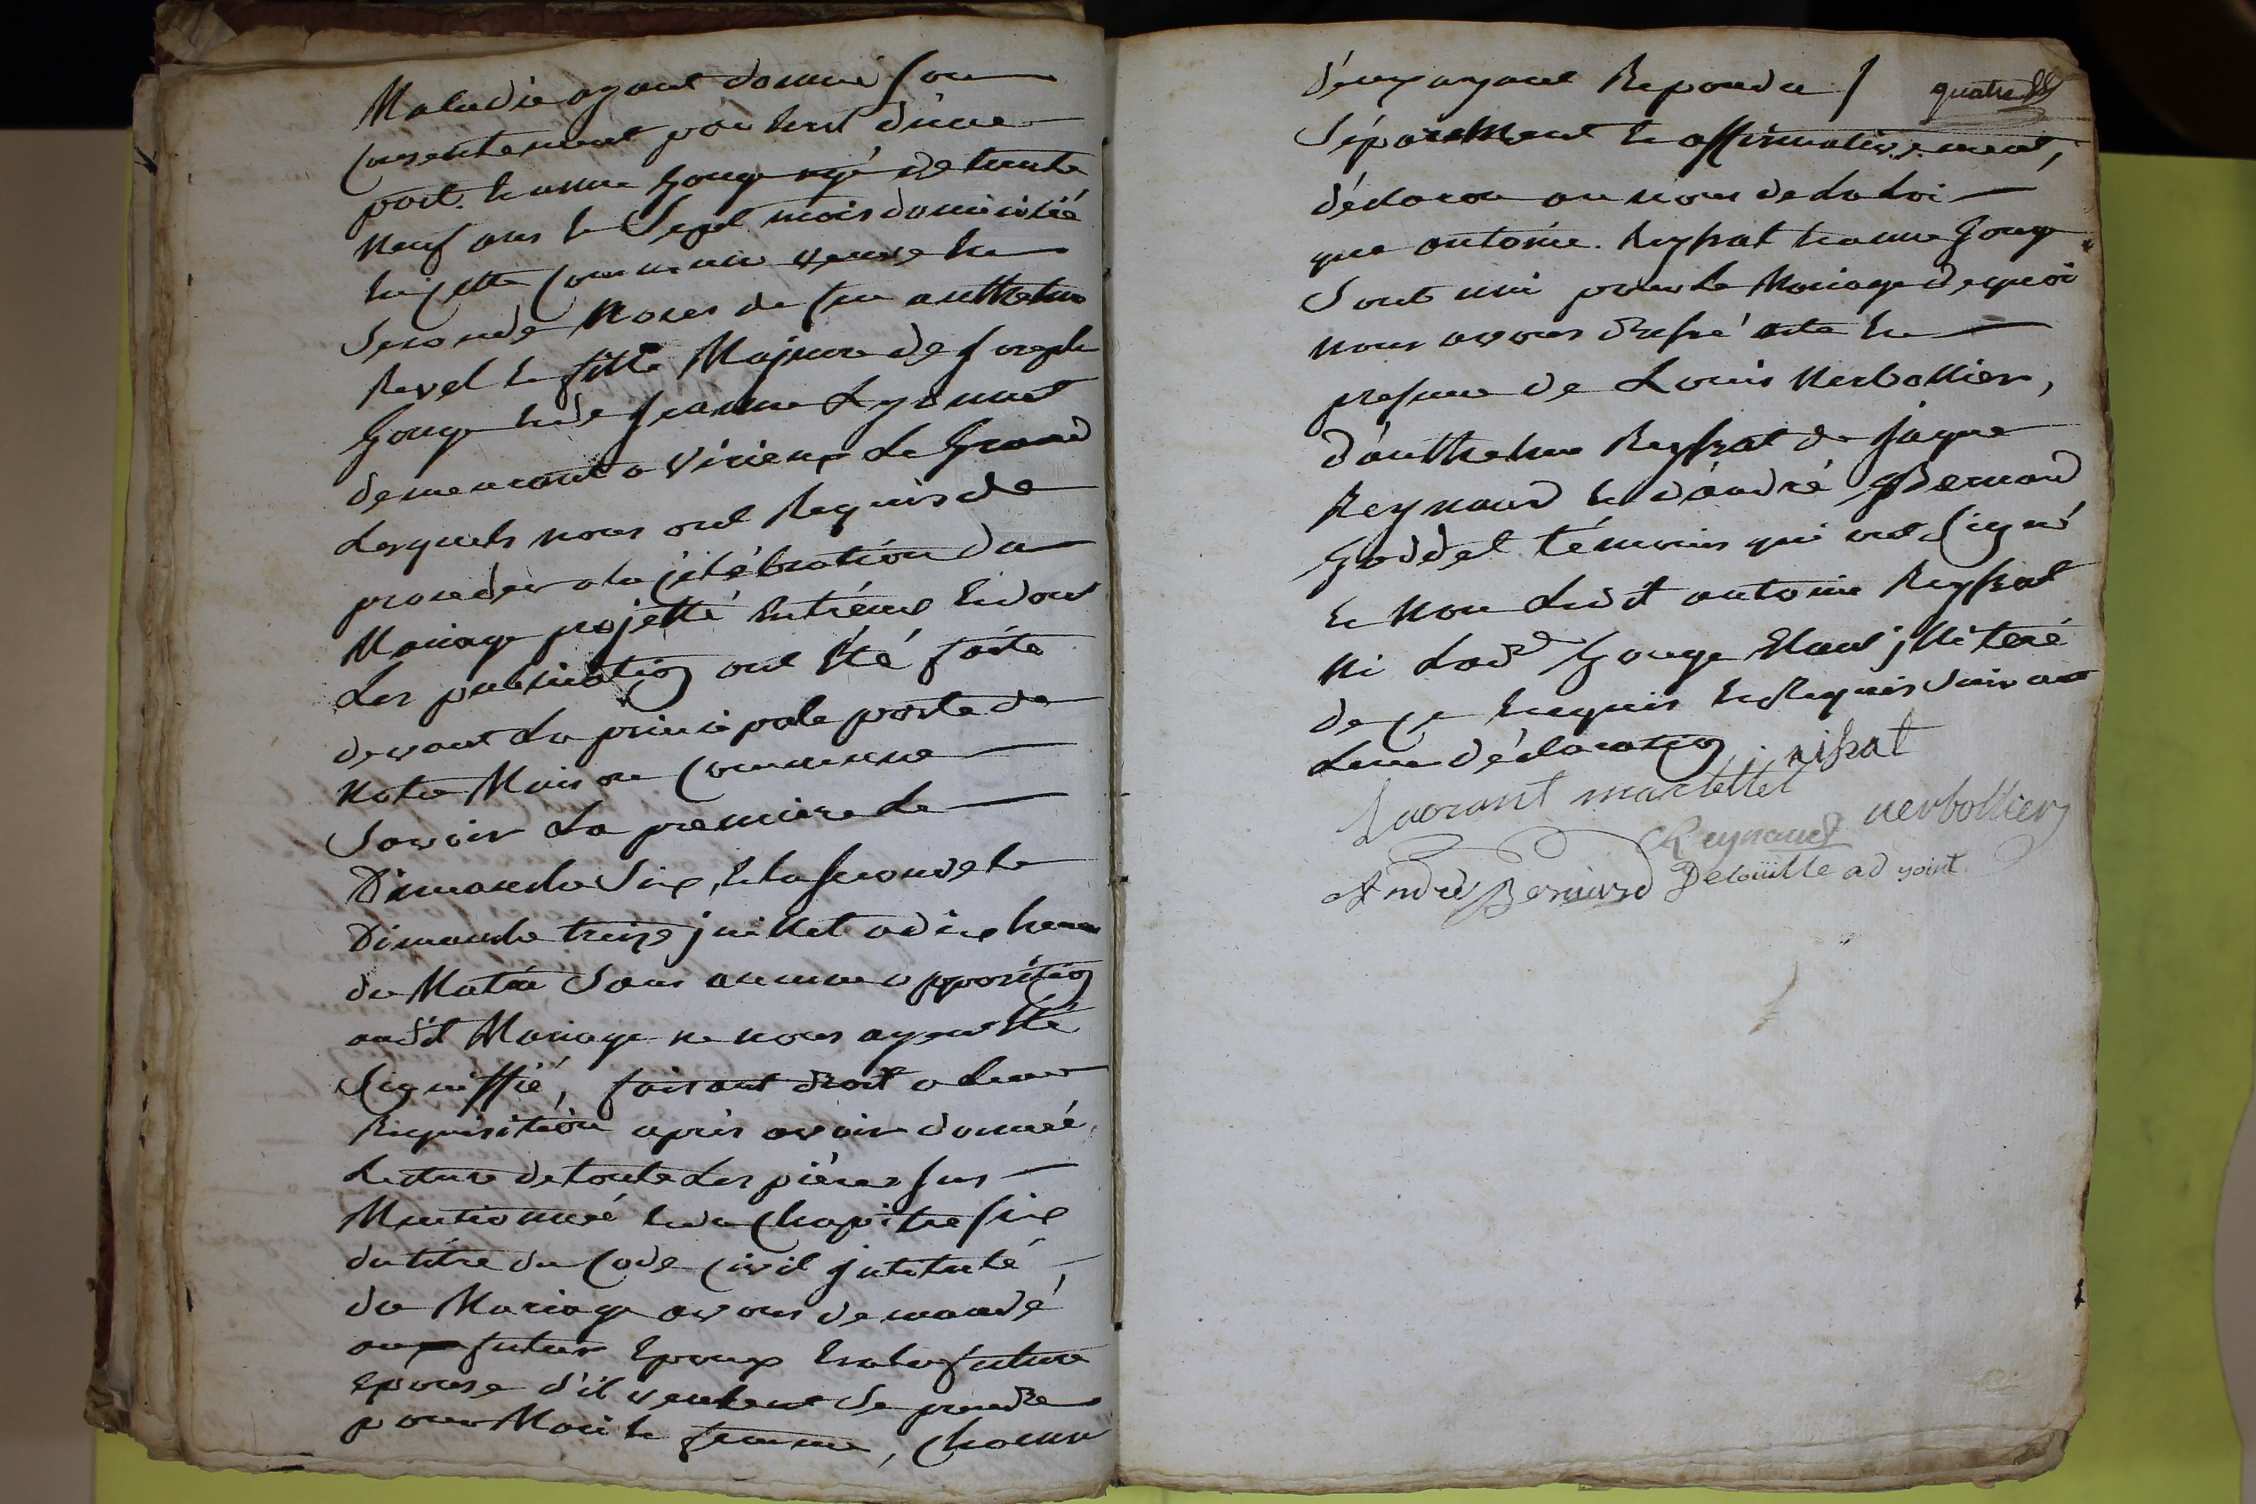 Maladie ayant donné son
consentement par écrit d'une
part. et anne Gouge agé de trente
neuf ans et Sept mois domicilié
en cette Commune veuve en
Seconde Noces de feu anthelme
Revel et fille Majeure de joseph
Gouge et de jeanne Lyonnet
demeurant a Virieux Le Grand
Lesquels nous ont Requis de
proceder a la célébration du
Mariage projetté entr'eux et dont
Les publication ont été faite
devant La principale porte de
Notre Maison Commune
Savoir La premiere Le
Dimanche Six, et la Seconde le
Dimanche treize juillet a dix heures
du Matin Sans aucune opposition
audit Mariage ne nous ayent été
Signiffié, faisant droit a Leur
Requisition apris avoir donnée
Lecture de toute Les pièces sus
Mentionnée et du Chapitre Six
du titre du Code Civil jntitulé
du Mariage avons demandé
au futur Epoux et a la future
Epouse s'il veulent Se prendre
pour Mari et femme, chacun
d'eux ayant Repondu /
quatre
Séparément et affirmativement,
déclaron au nom de La Loi
que antoine Reyssat et anne Gouge
Sont uni pour le Mariage de quoi
nous avons dressé acte en
presence de Louis Nerbollier,
d'anthelme Reyssat de jaque
Reynaud et d'andré Bernard
Goddet témoins qui ont Signé
et Non Ledit antoine Reyssat
Ni Lad.e Gouge Etant jlliteré
de ce Enquis et Requis Suivant
Leur déclaration. risat
Laurant martellel
Reynaud nerbollier
André Bernard Delouille adjoint